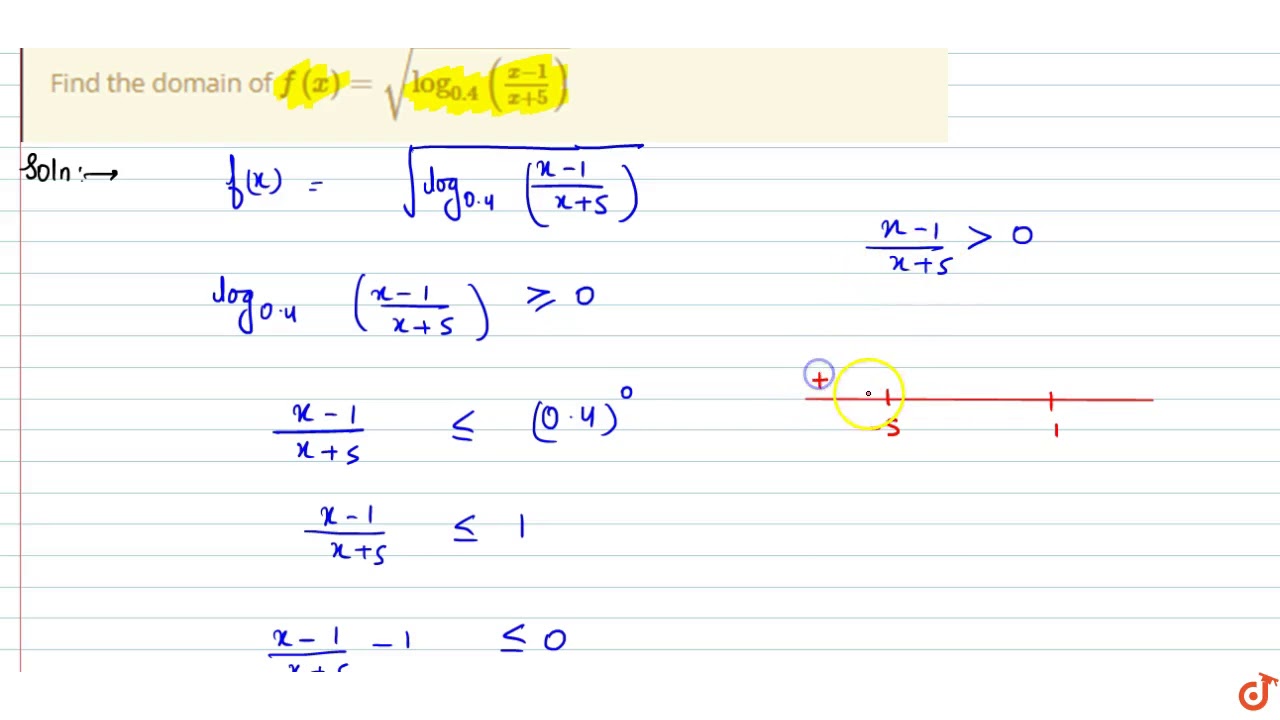 Find the domain of f(x) = √(log₀.₄ ((x−1)/(x+5)))
Soln :→ f(x) = √(log₀.₄ ((x−1)/(x+5)))
(x−1)/(x+5) > 0
log₀.₄ ((x−1)/(x+5)) ≥ 0
+
(x−1)/(x+5) ≤ (0.4)⁰
−5 1
(x−1)/(x+5) ≤ 1
(x−1)/(x+5) − 1 ≤ 0